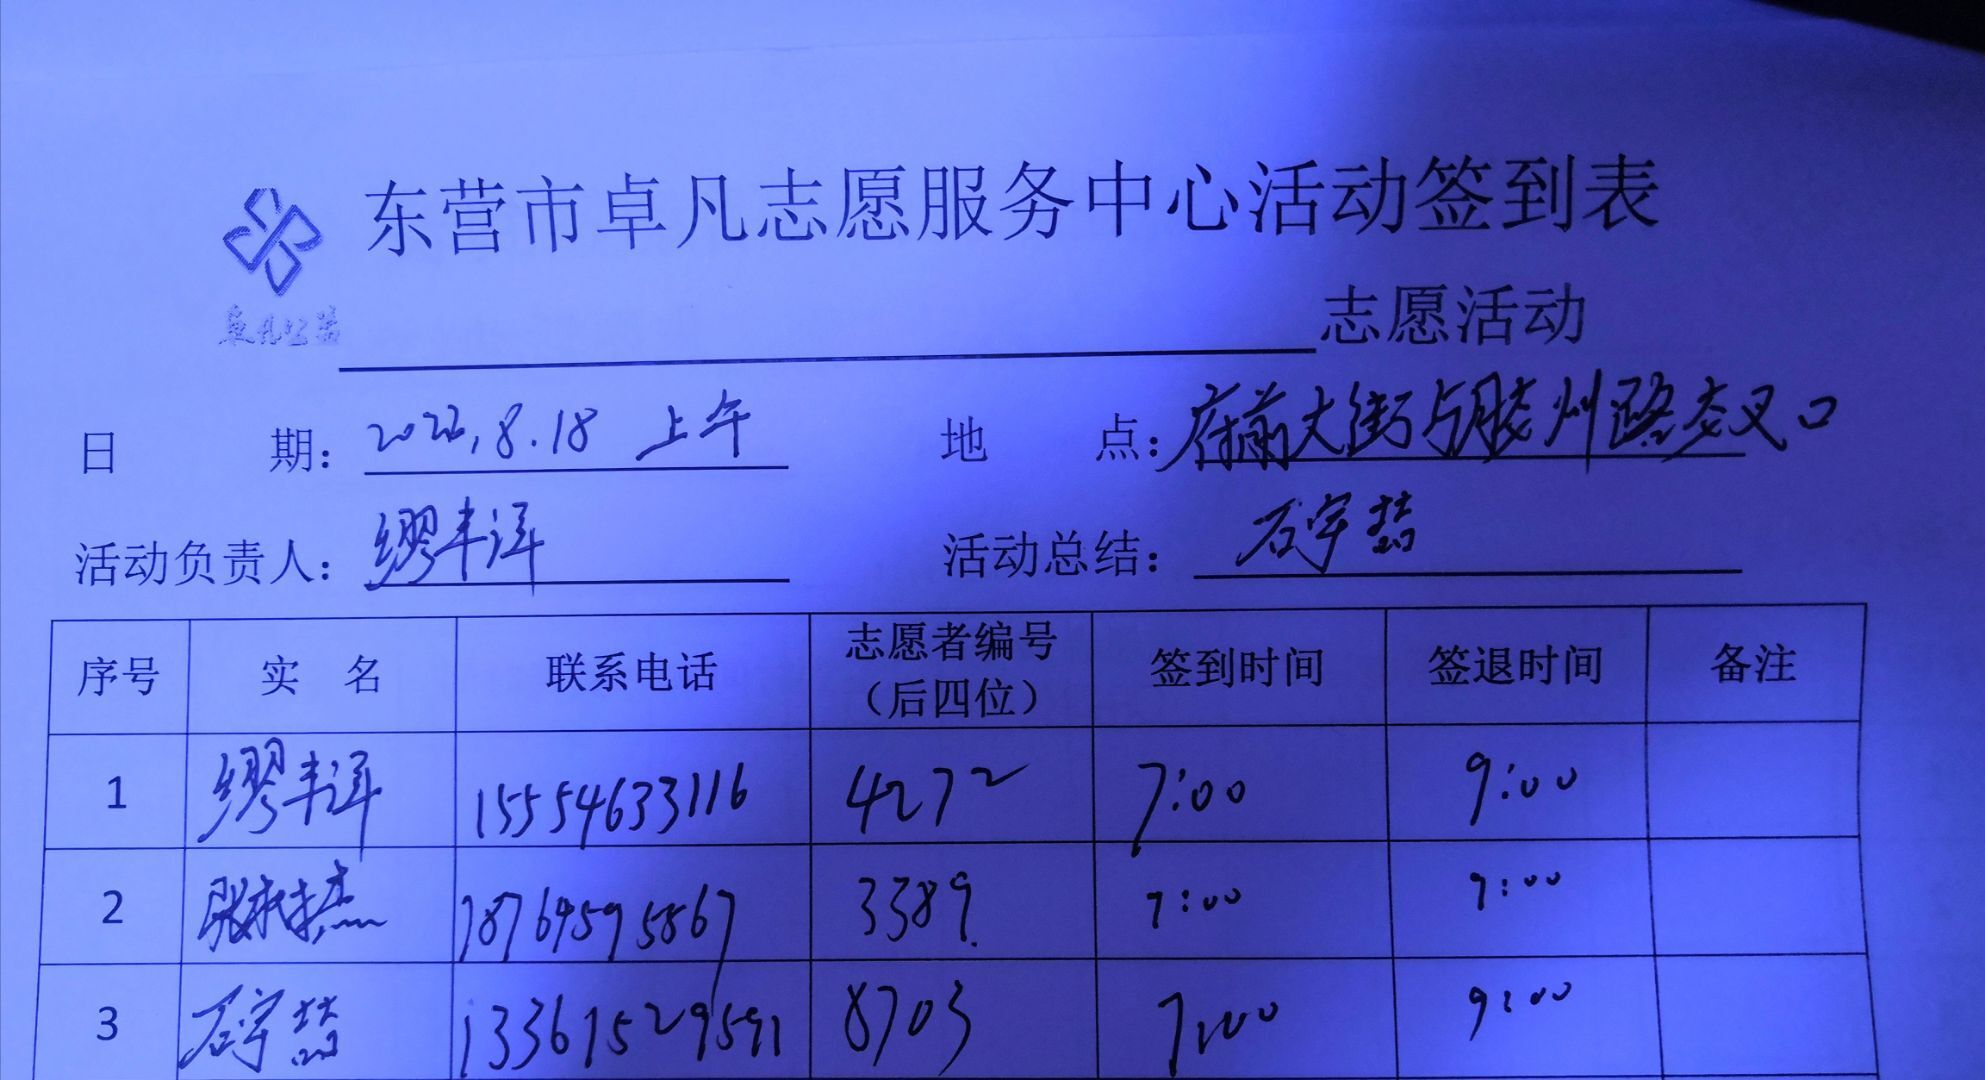 东营市卓凡志愿服务中心活动签到表
卓凡公益
志愿活动
日 期： 2022.8.18 上午 地 点： 府前大街与胶州路交叉口
活动负责人： 缪丰洋 活动总结： 石宇喆
序号 实 名 联系电话 志愿者编号（后四位） 签到时间 签退时间 备注
1 缪丰洋 15554633116 4272 7:00 9:00
2 18764595867 3389 7:00 9:00
3 石宇喆 13361529591 8703 7:00 9:00